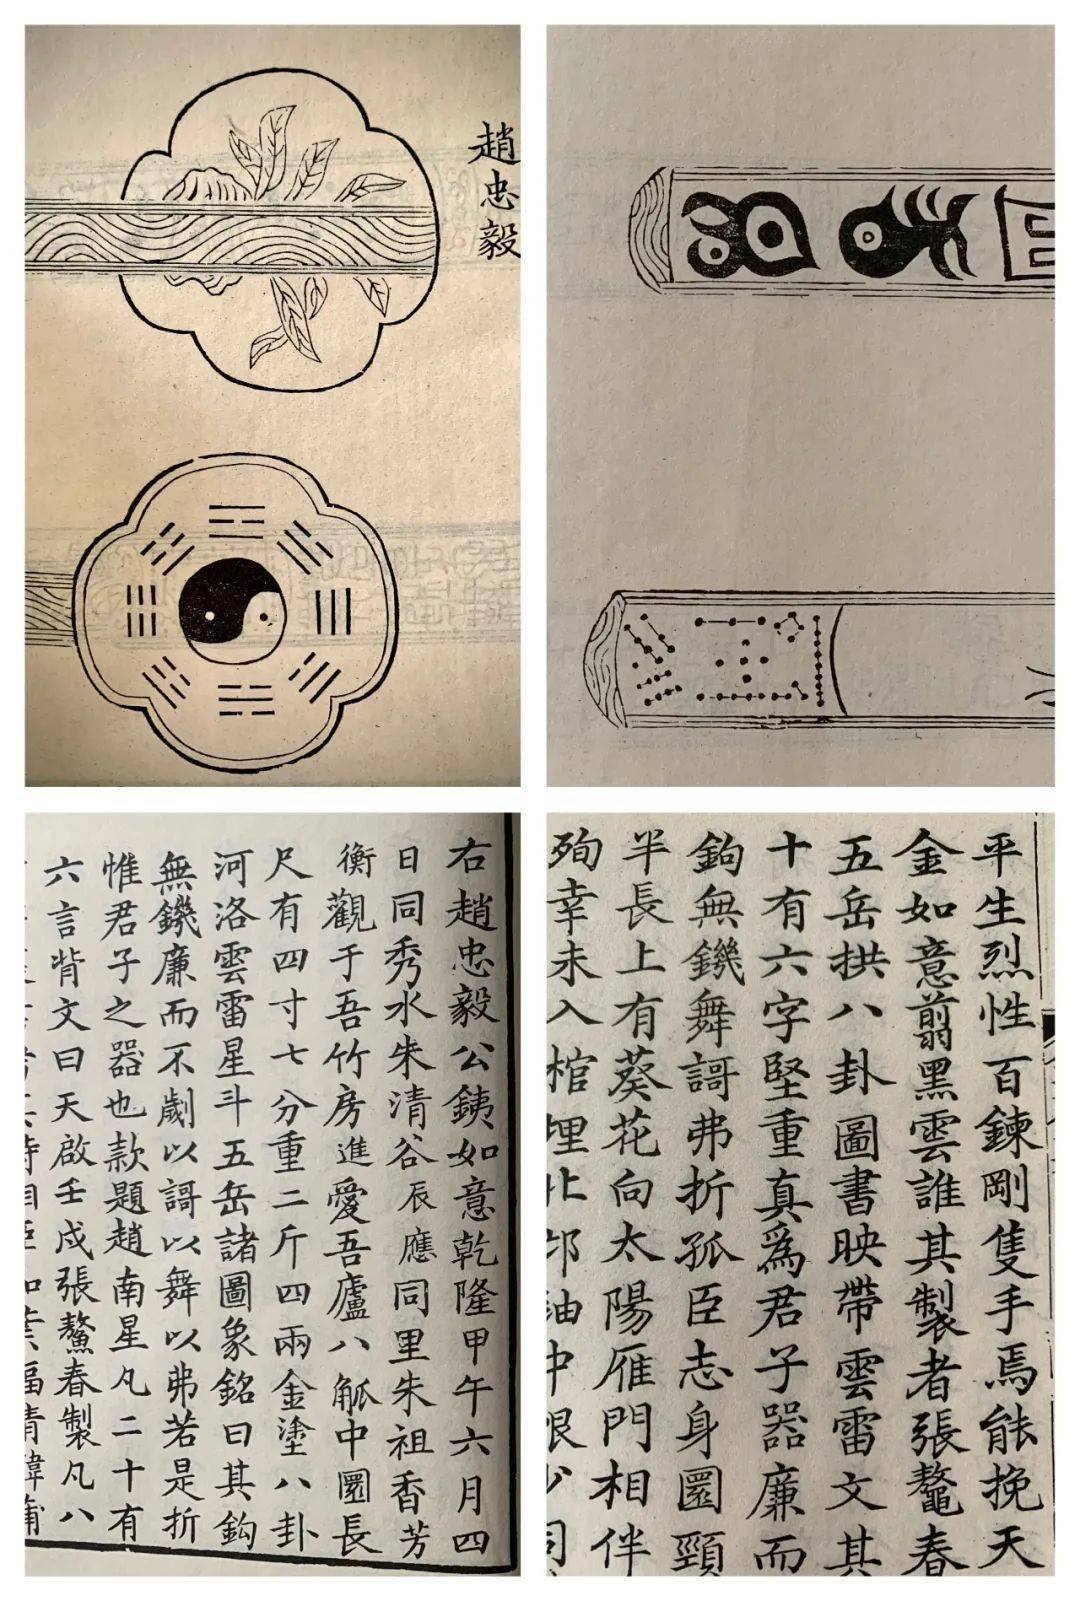 趙忠毅
右趙忠毅公銕如意乾隆甲午六月四
日同秀水朱清谷辰應同里朱祖香芳
衡觀于吾竹房進愛吾廬八觚中圜長
尺有四寸七分重二斤四兩金塗八卦
河洛雲雷星斗五岳諸圖象銘曰其鈎
無鐖廉而不劌以謌以舞以弗若是折
惟君子之器也款題趙南星凡二十有
六言背文曰天啟壬戌張鰲春製凡八
平生烈性百鍊剛隻手焉能挽天
金如意翦黑雲誰其製者張鼇春
五岳拱八卦圖書映帶雲雷文其
十有六字堅重真為君子器廉而
鉤無鐖舞謌弗折孤臣志身圜頸
半長上有葵花向太陽雁門相伴
殉幸未入棺埋北邙袖中恨少同